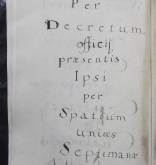 Per
Decretum
officij
præsentis
Ipsi
per
Spatium
unius
Septimanæ